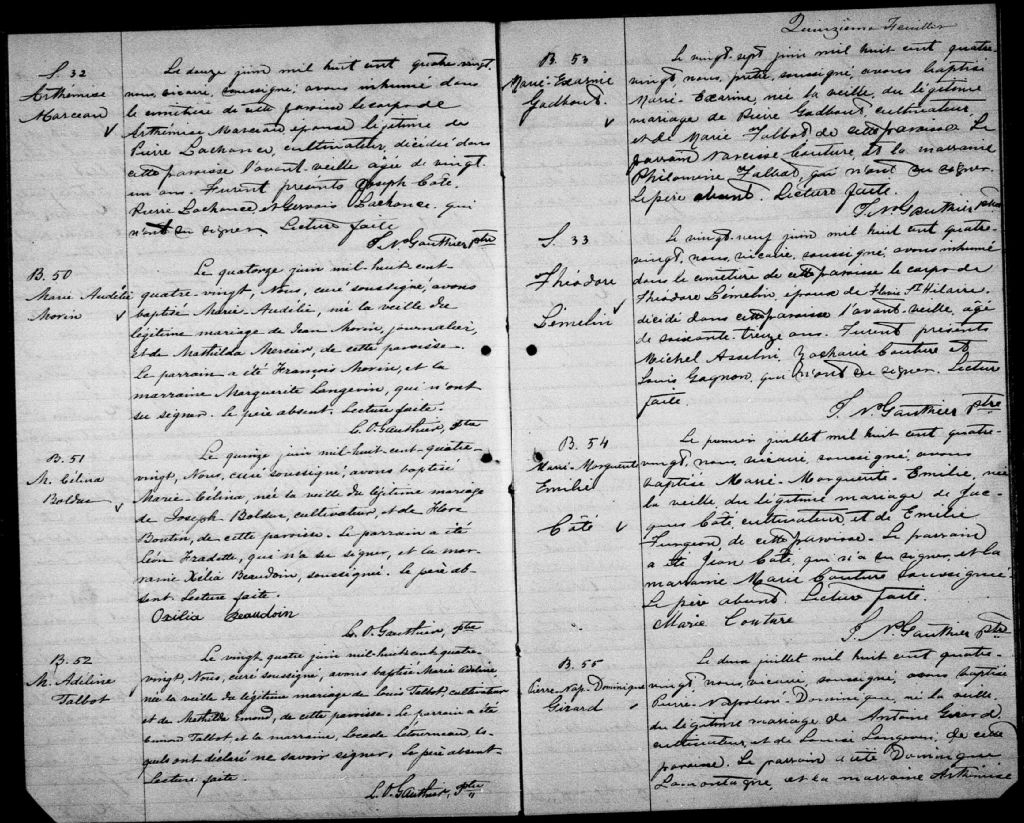 S. 32
Arthémise
Marceau
Le douze juin mil huit cent quatre vingt
nous, vicaire, soussigné, avons inhumé dans
le cimetière de cette paroisse le corps de
Arthémise Marceau épouse légitime de
Pierre Lachance, cultivateur, décédée dans
cette paroisse l'avant-veille âgée de vingt
un ans. Furent présents Joseph Côté,
Pierre Lachance et Gervais Lachance qui
n'ont su signer. Lecture faite
J. N. Gauthier ptre
B. 50
Marie Audélie
Morin
Le quatorze juin mil-huit-cent-
quatre-vingt, Nous, curé soussigné, avons
baptisé Marie-Audélie, née la veille du
légitime mariage de Jean Morin, journalier,
et de Mathilda Mercier, de cette paroisse.
Le parrain a été François Morin, et la
marraine Marguerite Langevin, qui n'ont
su signer. Le père absent. Lecture faite.
L. O. Gauthier, ptre
B. 51
M. Célina
Bolduc
Le quinze juin mil-huit-cent-quatre-
vingt, Nous, curé soussigné, avons baptisé
Marie-Célina, née la veille du légitime mariage
de Joseph Bolduc, cultivateur, et de Flore
Boutin, de cette paroisse. Le parrain a été
Léon Fradette, qui n'a su signer, et la mar-
raine Exélia Beaudoin, soussigné. Le père ab-
sent. Lecture faite.
Beaudoin
L. O. Gauthier, ptre
B. 52
M. Adéline
Talbot
Le vingt quatre juin mil-huit-cent-quatre-
vingt, Nous, curé soussigné, avons baptisé Marie Adéline,
née la veille du légitime mariage de Louis Talbot, cultivateur
et de Mathilde Emond, de cette paroisse. Le parrain a été
Talbot et la marraine, Letourneau, les-
quels ont déclaré ne savoir signer. Le père absent.
Lecture faite.
L. O. Gauthier, Ptre
Quinzième Feuillet
B. 53
Marie-Exarine
Gadbout
Le vingt-sept juin mil huit cent quatre-
vingt, nous, prêtre, soussigné, avons baptisé
Marie-Exarine, née la veille, du légitime
mariage de Pierre Gadbout, cultivateur,
et de Marie Talbot de cette paroisse. Le
parrain Narcisse Couture, et la marraine
Philomène Talbot, qui n'ont su signer.
Le père absent. Lecture faite.
J. N. Gauthier ptre
S. 33
Théodore
Lémelin
Le vingt-neuf juin mil huit cent quatre-
vingt, nous, vicaire, soussigné, avons inhumé
dans le cimetière de cette paroisse le corps de
Théodore Lémelin, époux de St Hilaire.
décédé dans cette paroisse l'avant-veille, âgé
de soixante-treize ans. Furent présents
Michel Asselin, Zacharie Couture et
Louis Gagnon, qui n'ont su signer. Lecture
faite.
J. N. Gauthier Ptre
B. 54
Marie-Marguerite
Emilie
Côté
Le premier juillet mil huit cent quatre-
vingt, nous, vicaire, soussigné, avons
baptisé Marie-Marguerite-Emilie, née
la veille du légitime mariage de Jac-
ques Côté, cultivateur, et de Emilie
Turgeon, de cette paroisse. Le parrain
a été Jean Côté, qui n'a su signer, et la
marraine Marie Couture soussignée.
Le père absent. Lecture faite.
Marie Couture
J. N. Gauthier Ptre
B. 55
Pierre-Nap.-Dominique
Girard
Le deux juillet mil huit cent quatre-
vingt, nous, vicaire, soussigné, avons baptisé
Pierre-Napoléon-Dominique, né la veille
du légitime mariage de Antoine Girard,
cultivateur, et de Louise Langevin, de cette
paroisse. Le parrain a été Dominique
Lamontagne, et la marraine Arthémise